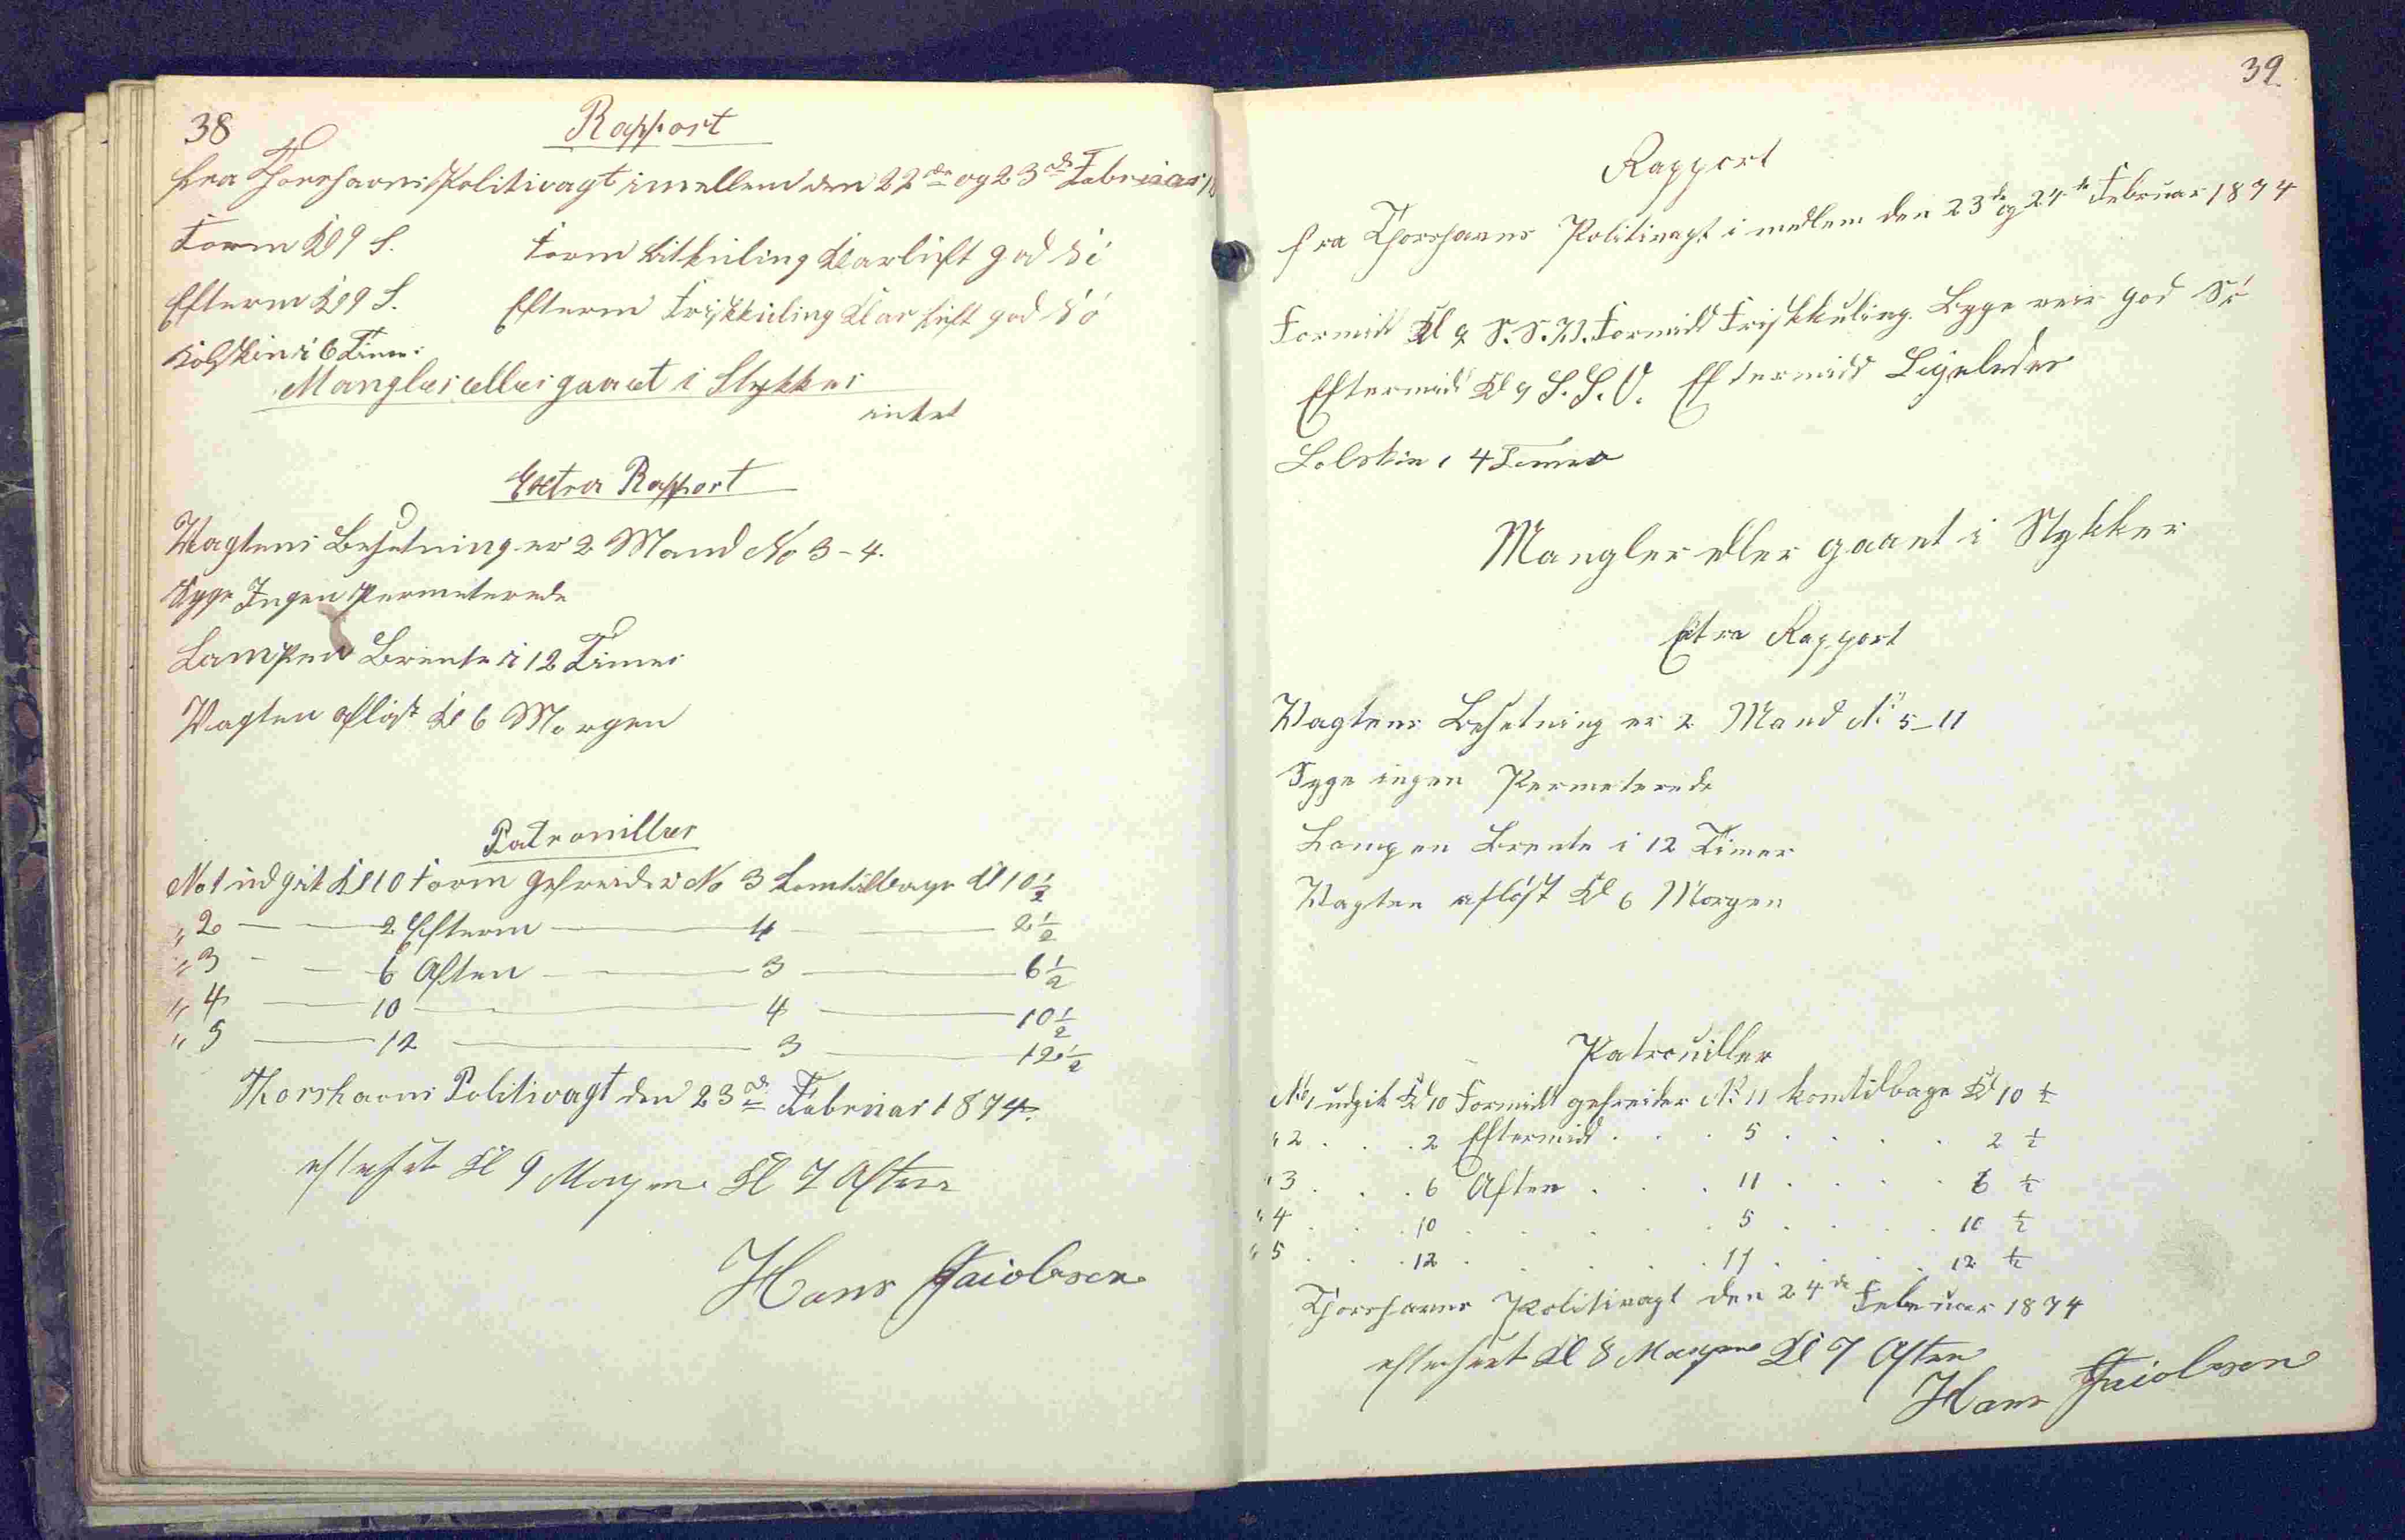 38
Rapport
fra Thorshavns Politivagt imellem den 22de og 23de Februar 18
Form Kl 9 S. Form Litkuling Klarluft god Sö
Efterm Kl 9 S. Efterm Friskkuling Klar luft god Sö
Solskin i 6 Timer
Mangler eller gaaet i Stykker
intet
Extra Rapport
Vagtens Besetning er 2 Mand No 3-4.
Syge Ingen Permeterede
Lampen Brente i 12 Timer
Vagten aflöst Kl 6 Morgen
Patrouiller
No 1 udgik Kl 10 Form gefreider No 3 komtilbage Kl 10 1/2
" 2 — — 2 Efterm — 4 — 2 1/2
" 3 — — 6 Aften — 3 — 6 1/2
" 4 — 10 — 4 — 10 1/2
" 5 — 12 — 3 — 12 1/2
Thorshavns Politivagt den 23de Februar 1874.
efterset Kl 9 Morgen Kl 7 Aften
Hans Jacobsen
39
Rapport
fra Thorshavns Politivagt i mellem den 23de og 24de Februar 1874
Formidd Kl 9 S.S.V. Formidd Friskkuling. Byge veir god Sö
Eftermidd Kl 9 S.S.V. Eftermidd Ligeledes
Solskin i 4 Timer
Mangler eller gaaet i Stykker
Extra Rapport
Vagtens Besetning er 2 Mand No 5-11
Syge ingen Permeterede
Lampen Brente i 12 Timer
Vagten aflöst Kl 6 Morgen
Patrouiller
No 1 udgik Kl 10 Formidd gefreider No 11 komtilbage Kl 10 1/2
" 2 . . . 2 Eftermidd . . . 5 . . . . 2 1/2
" 3 . . . 6 Aften . . . 11 . . . . 6 1/2
" 4 . . . 10 . . . . 5 . . . . 10 1/2
" 5 . . . 12 . . . . 11 . . . . 12 1/2
Thorshavns Politivagt den 24de Februar 1874
efterseet Kl 8 Morgen Kl 7 Aften
Hans Jacobsen